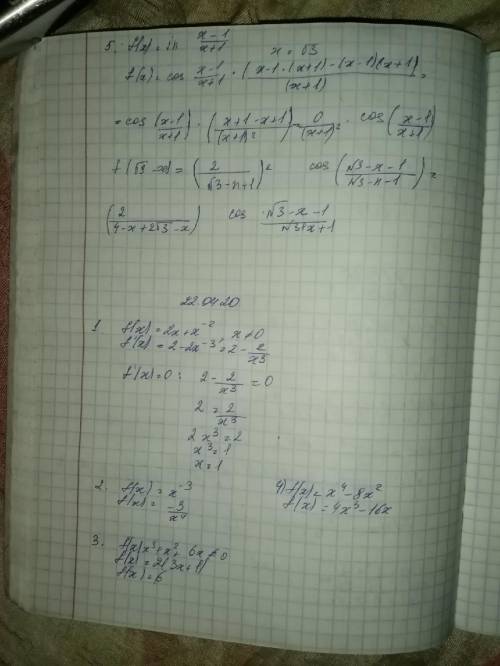 5. f(x) = in x-1/x+1 x = √3
f(x) = cos x-1/x+1 · (x-1·(x+1)-(x-1)(x+1)/(x+1)) =
= cos(x-1/x+1) · (x+1-x+1/(x+1)²) 0/(x+1)² · cos(x-1/x+1)
f(√3 = (2/√3-n+1)² cos(√3-x-1/√3-n-1) =
(2/4-x+2√3-x) cos √3-x-1/√3+x+1
22.04 20
1 f(x) = 2x+x⁻² x≠0
f'(x) = 2-2x⁻³ = 2-2/x³
f'(x)=0: 2-2/x³ = 0
2 = 2/x³
2x³ = 2
x³ = 1
x = 1
2. f(x) = x⁻³
f(x) = -3/x⁴
4) f(x) = x⁴-8x²
f(x) = 4x³-16x
3. f(x) x³+x²+ 6x 0
f(x) = 2(3x+1)
f(x) = 6